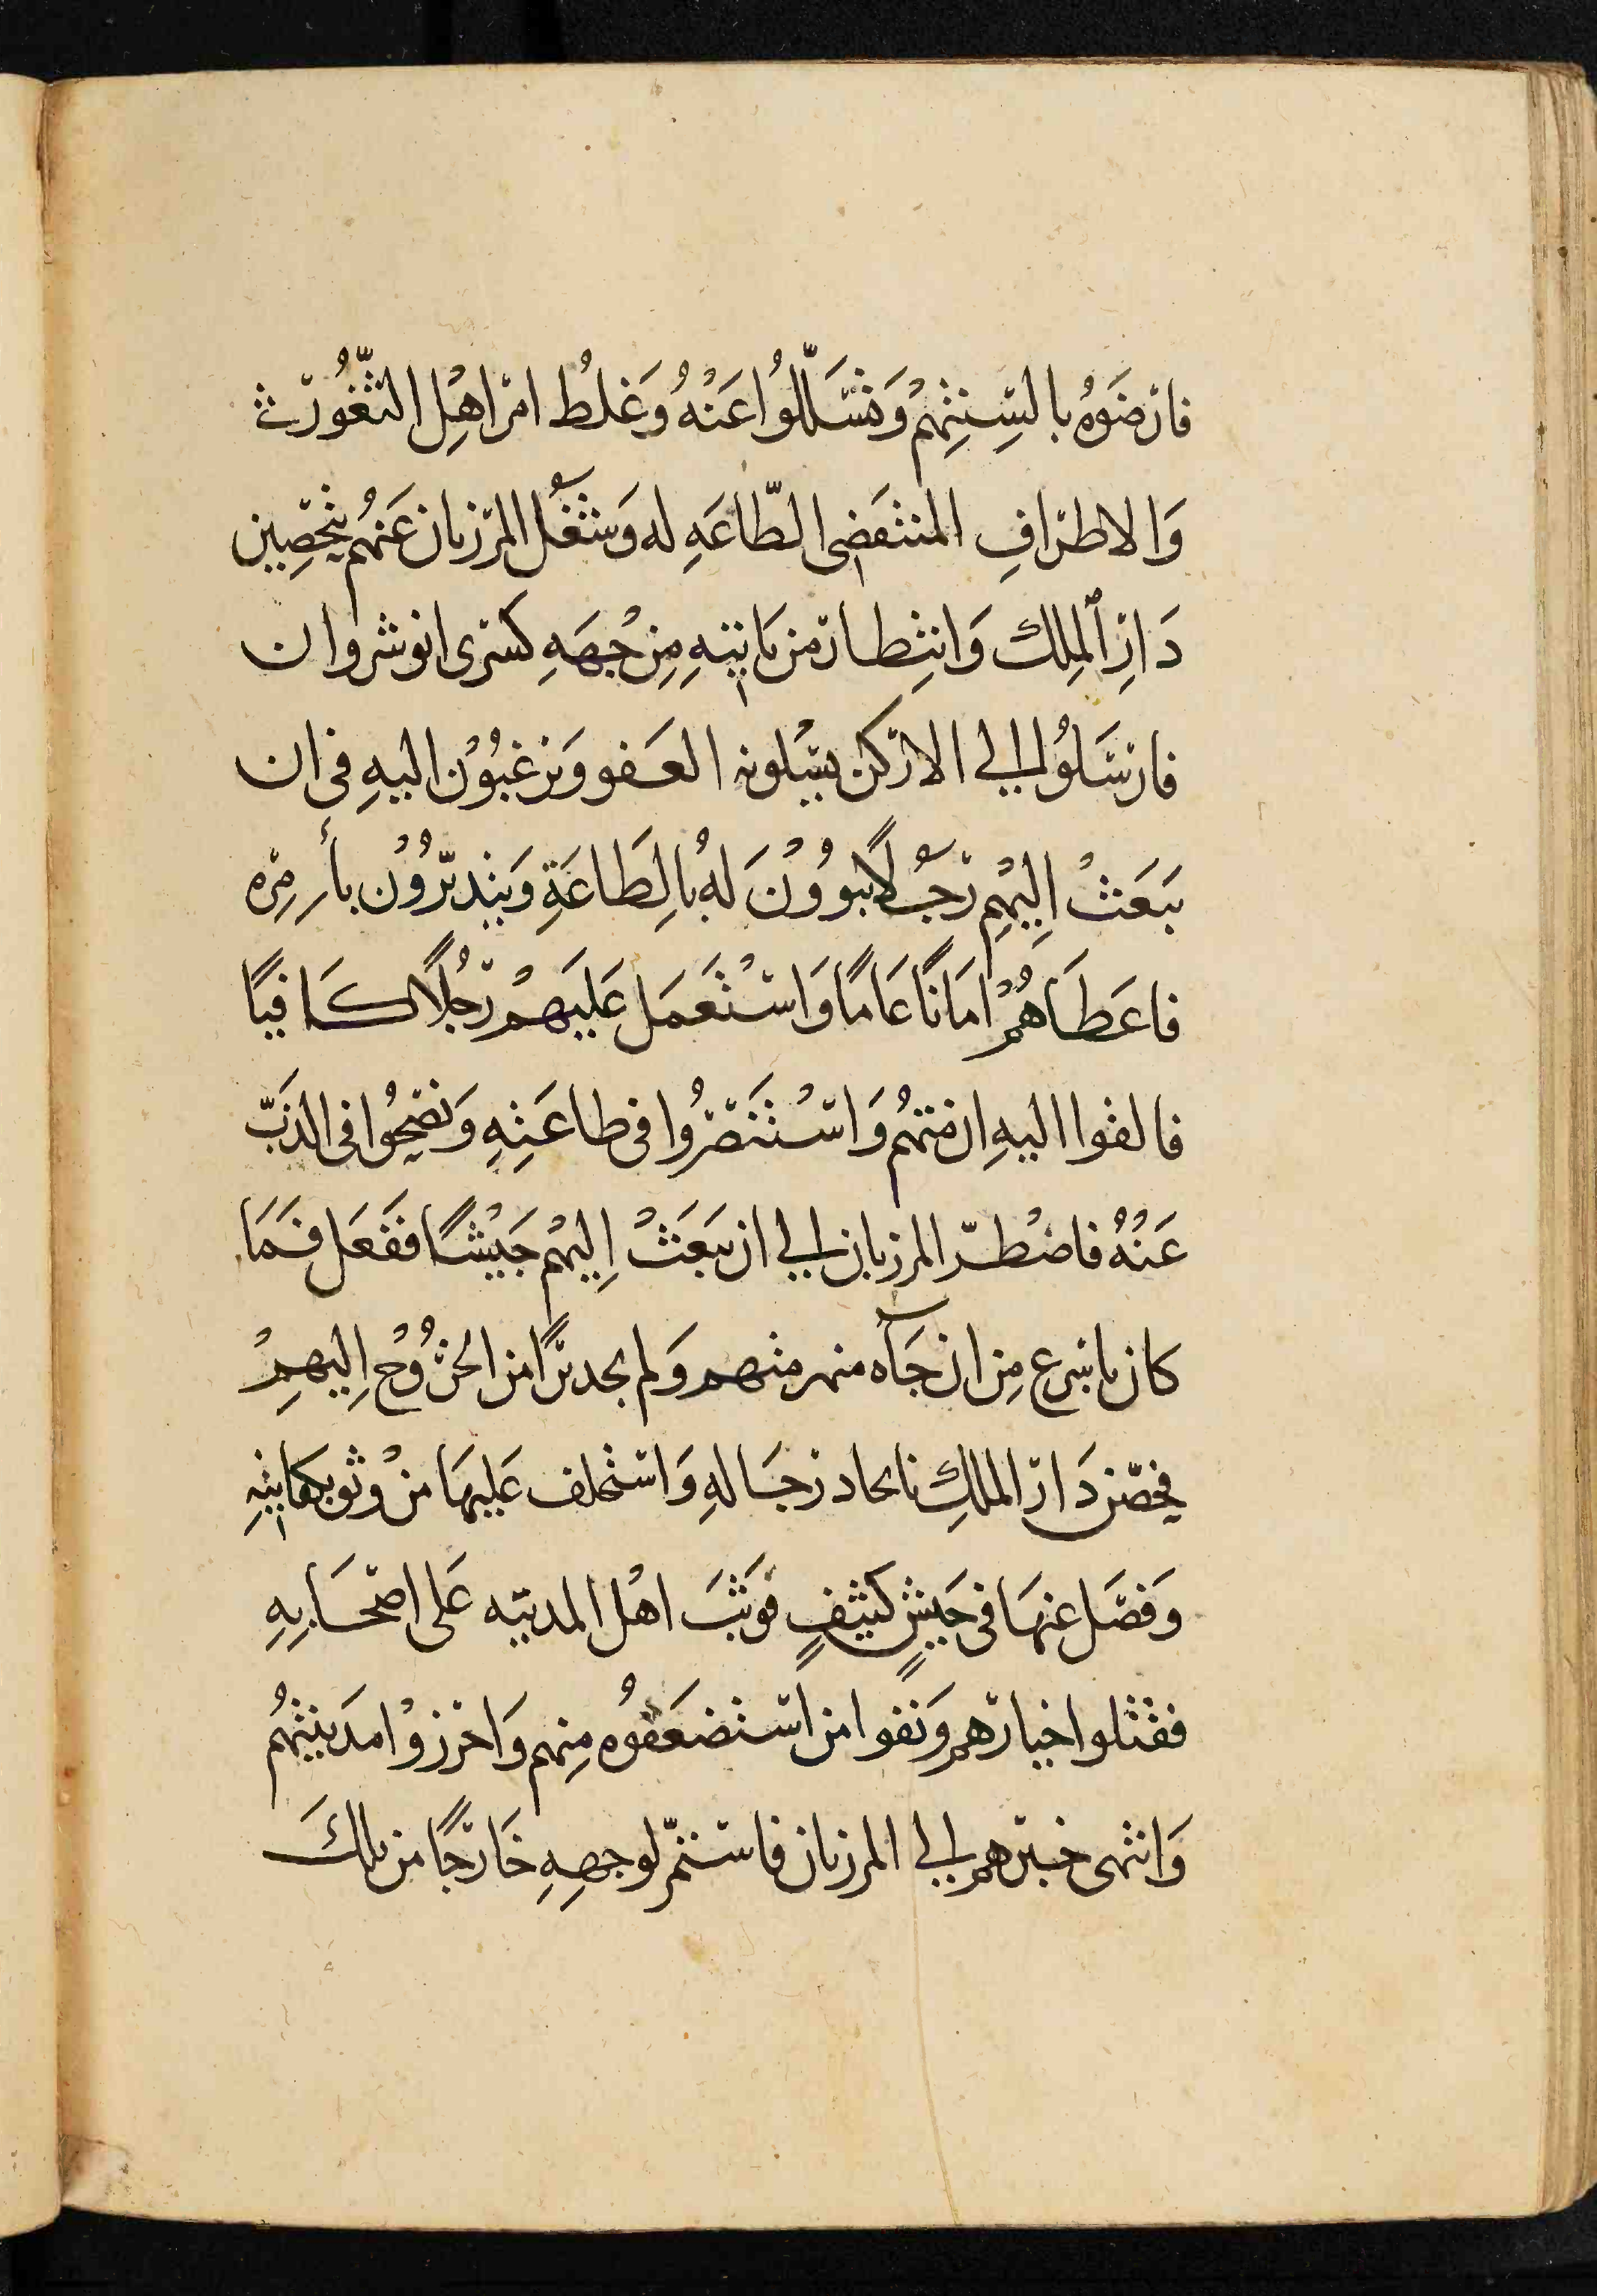 فارضَوهُ بالسِنتِهِمْ وَتسَلّلوُا عَنْهُ وَغلُط امر اهْلِ الثّغُور
وَالاطرَافِ المنتقضى الطّاعَهِ له وَشغْل المرزبان عَنهُم بتحصِين
دَارِ الملِك وَانتِظار من ياتيهِ مِن جهَهِ كسرى انوشروان
فارسَلوُا الى الاركن يسْلونه العَفو وَيرغبوُنْ اليهِ فى ان
يبَعَثْ اِليْهِم رَجُلاً يبوؤُوْنَ لهُ بالِطَاعَةِ وَيتدبّرُوُنْ بأمرِه
فاعَطَاهُمْ امَانًا عَامًا وَاسْتَعمَل عَلَيهمْ رجُلاً كَافيًا
فالقوا اليهِ ازمتهُم وَاسْتَنصَرُوا فى طاعَتِهِ وَنصَحُوا فى الذَبّ
عَنْهُ فاضْطرّ المرزبان الى ان يبَعَثْ اِليْهم جَيْشًا ففَعَل فَمَا
كان باسرع مِن ان جَآه منهزمتهم وَلم يجد بدًّا من الخرُوْج اِليهِمْ
فحصّن دَار الملكِ بانجاد رجَالهِ وَاستخلف عَليهَا منْ وثق بكفايتهِ
وَفصَل عنهَا فى جَيشٍ كثيفٍ فوَثبَ اهْل المدينه عَلى اصحَابِهِ
فقتلوا خيارهم وَنفوا من استضعَفوُه مِنهم وَاحرزوْا مدَينتهُم
وَانتهى خبرهم الى المرزبان فاستمرّ لوجهِهِ خَارجًا من تلكَ